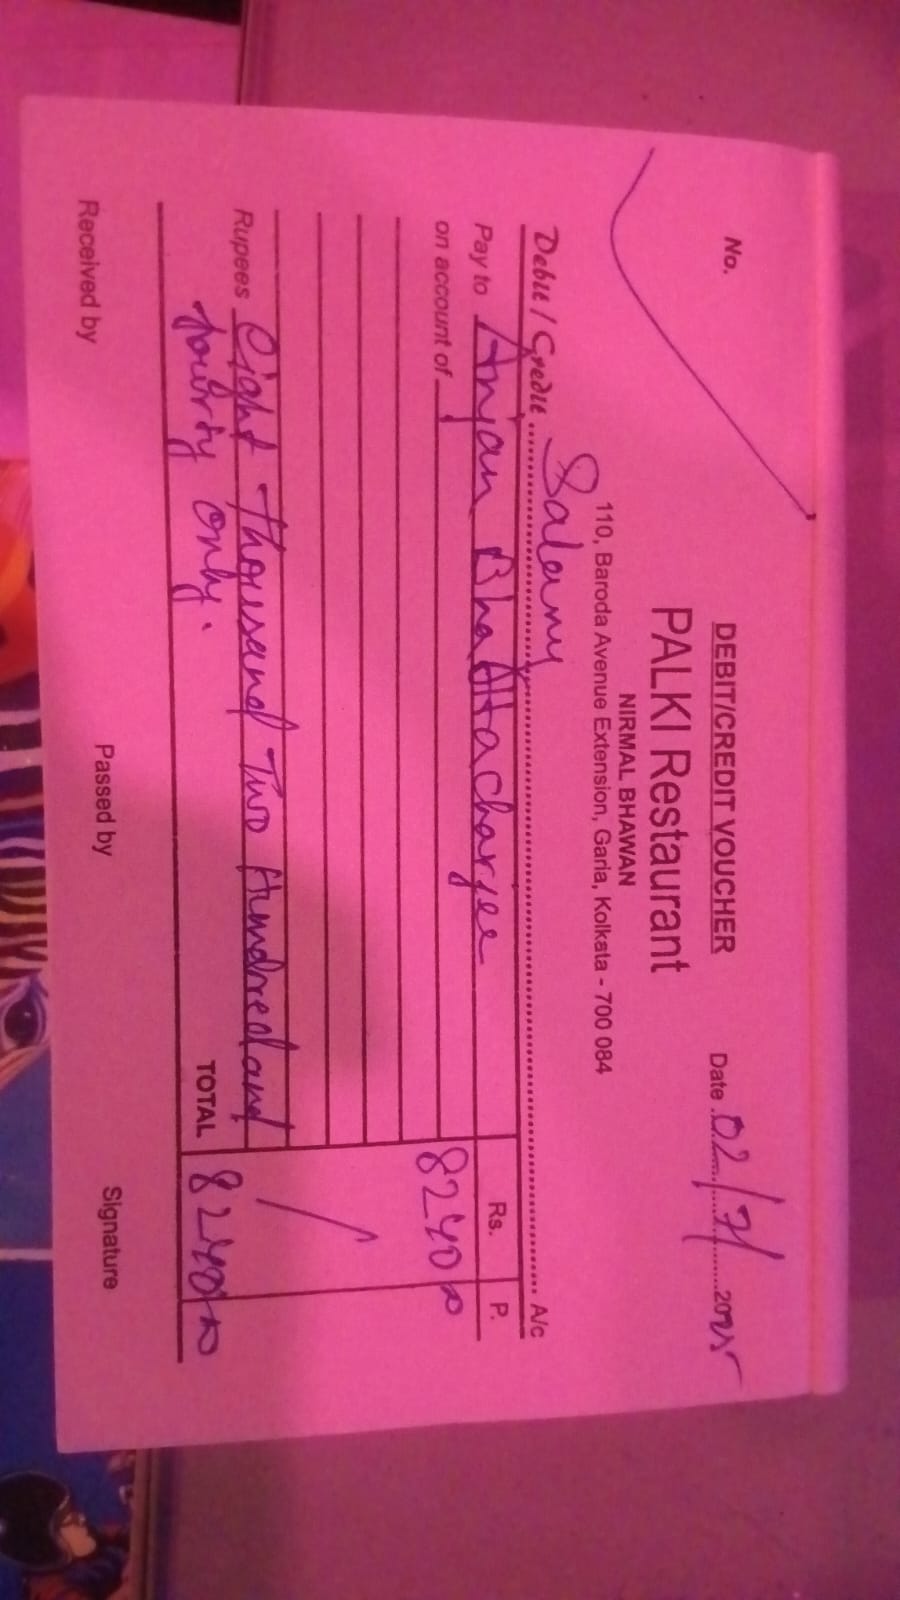 DEBIT/CREDIT VOUCHER
No.
Date 02/7/2025
PALKI Restaurant
NIRMAL BHAWAN
110, Baroda Avenue Extension, Garia, Kolkata - 700 084
Debit / Credit Salary A/c
Pay to Anjan Bhattacharjee Rs. P.
on account of 8240 00
Rupees Eight Thousand Two Hundred and
fourty only.
TOTAL 8240 00
Received by Passed by Signature